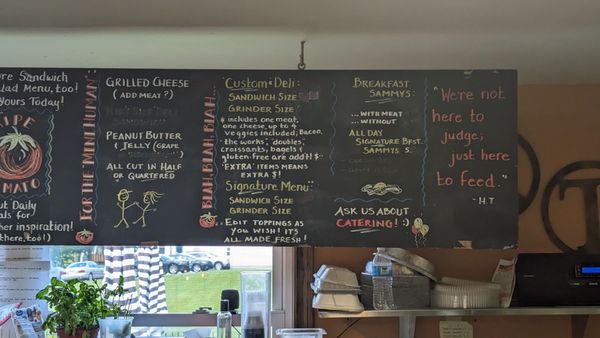 ure Sandwich
lad Menu, too!
Yours Today!
RIPE
TOMATO
ut Daily
ials for
ther inspiration!
there, too!)
FOR THE MINI HUMAN
GRILLED CHEESE
(ADD MEAT?)
PEANUT BUTTER
& JELLY (GRAPE
ALL CUT IN HALF
OR QUARTERED
BLAH BLAH BLAH
Custom Deli:
SANDWICH SIZE
GRINDER SIZE
* includes one meat,
one cheese, up to 4
veggies included. Bacon,
'the works', 'doubles',
croissants, bagels &
gluten-free are add'l $
'EXTRA' ITEMS MEANS
EXTRA $
Signature Menu:
SANDWICH SIZE
GRINDER SIZE
..EDIT TOPPINGS AS
YOU WISH! IT'S
ALL MADE FRESH!
BREAKFAST
SAMMYS:
... WITH MEAT
... WITHOUT
ALL DAY
SIGNATURE BFST.
SAMMYS $
ASK US ABOUT
CATERING! :)
"We're not
here to
judge,
just here
to feed."
- H.T.